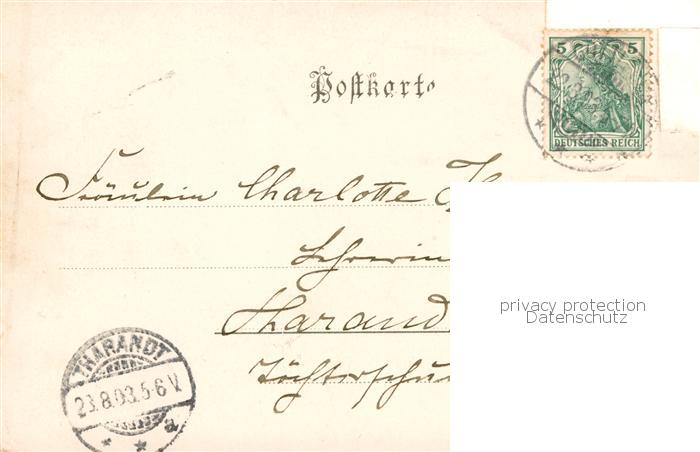 5 5
DEUTSCHES REICH
Postkarte
Fräulein Charlotte
Lehrerin
Tharand
privacy protection
Datenschutz
THARANDT
23.8.03.5-6 V.
* * a